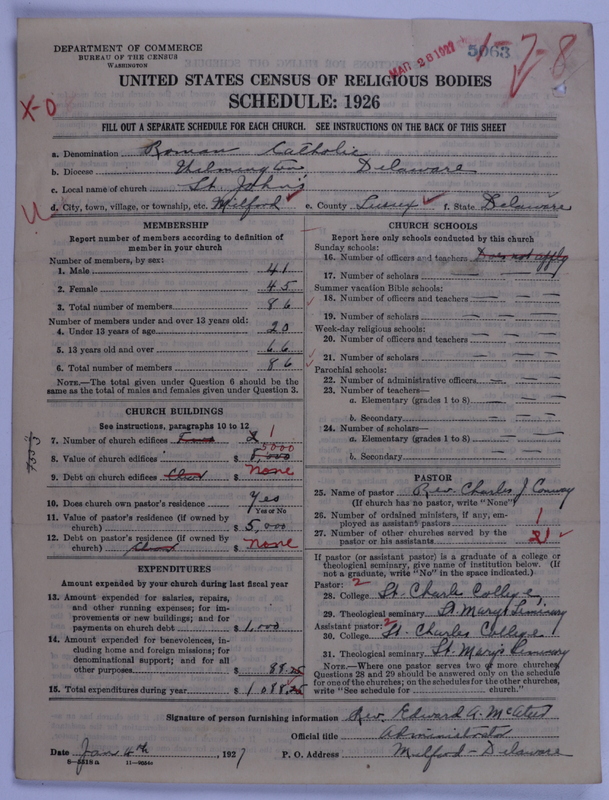 DEPARTMENT OF COMMERCE
BUREAU OF THE CENSUS
WASHINGTON
MAR 28 1927
5063
1-7-8
UNITED STATES CENSUS OF RELIGIOUS BODIES
SCHEDULE: 1926
X-0
FILL OUT A SEPARATE SCHEDULE FOR EACH CHURCH. SEE INSTRUCTIONS ON THE BACK OF THIS SHEET
a. Denomination Roman Catholic
b. Diocese Wilmington Delaware
c. Local name of church St. John's
d. City, town, village, or township, etc. Milford e. County Sussex f. State Delaware
MEMBERSHIP
Report number of members according to definition of
member in your church
Number of members, by sex:
1. Male 41
2. Female 45
3. Total number of members 86
Number of members under and over 13 years old:
4. Under 13 years of age 20
5. 13 years old and over 66
6. Total number of members 86
NOTE.—The total given under Question 6 should be
the same as the total of males and females given under Question 3.
CHURCH BUILDINGS
See instructions, paragraphs 10 to 12
7. Number of church edifices 2 1
8. Value of church edifices $ 8,000 5000
9. Debt on church edifices Clear $ none
10. Does church own pastor's residence? Yes
Yes or No
11. Value of pastor's residence (if owned by
church) $ 5,000
12. Debt on pastor's residence (if owned by
church) Clear $ none
EXPENDITURES
Amount expended by your church during last fiscal year
13. Amount expended for salaries, repairs,
and other running expenses; for im-
provements or new buildings; and for
payments on church debt $ 1,000
14. Amount expended for benevolences, in-
cluding home and foreign missions; for
denominational support; and for all
other purposes $ 88.25
15. Total expenditures during year $ 1,088.25
CHURCH SCHOOLS
Report here only schools conducted by this church
Sunday schools:
16. Number of officers and teachers Does not apply
17. Number of scholars
Summer vacation Bible schools:
18. Number of officers and teachers
19. Number of scholars
Week-day religious schools:
20. Number of officers and teachers
21. Number of scholars
Parochial schools:
22. Number of administrative officers
23. Number of teachers—
a. Elementary (grades 1 to 8)
b. Secondary
24. Number of scholars—
a. Elementary (grades 1 to 8)
b. Secondary
PASTOR
25. Name of pastor Rev. Charles J. Conway
(If church has no pastor, write "None")
26. Number of ordained ministers, if any, em-
ployed as assistant pastors 1
27. Number of other churches served by the
pastor or his assistants 1
If pastor (or assistant pastor) is a graduate of a college or
theological seminary, give name of institution below. (If
not a graduate, write "No" in the space indicated.)
Pastor: 2
28. College St. Charles College
29. Theological seminary St. Marys Seminary
Assistant pastor: 2
30. College St. Charles College
31. Theological seminary St. Marys Seminary
NOTE.—Where one pastor serves two or more churches,
Questions 28 and 29 should be answered only on the schedule
for one of the churches; on the schedules for the other churches,
write "See schedule for church."
Signature of person furnishing information Rev. Edward A.
Official title Administrator
Date Jan 4th, 1927 P. O. Address Milford - Delaware
11-9566